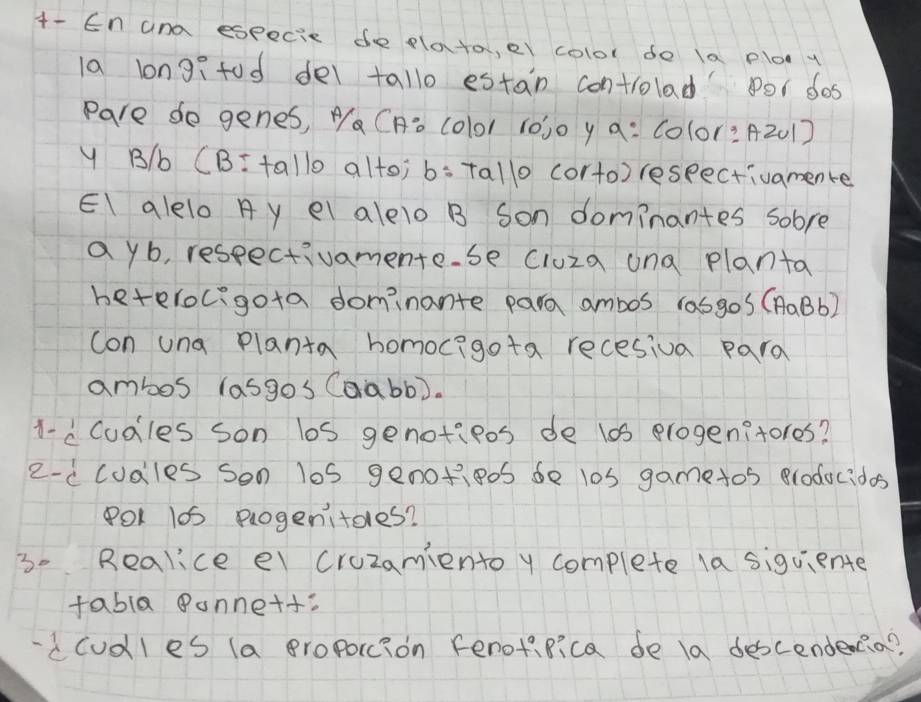 1- En una especie de planta, el color de la y
la longitud del tallo estan controlad por dos
Pare de genes, A/a (A: color rojo y a: color: Azul)
y B/b (B: tallo alto; b: Tallo corto) respectivamente
El alelo A y el alelo B son dominantes sobre
a y b, respectivamente. Se cruza una planta
heterocigota dominante para ambos rasgos (AaBb)
Con una Planta homocigota recesiva para
ambos rasgos (aabb).
1-¿Cuáles son los genotipos de los progenitores?
2-¿Cuáles son los genotipos de los gametos producidos
por los progenitores?
3- Realice el Cruzamiento y complete la siguiente
tabla Punnett:
-¿Cuál es la proporción Fenotípica de la descendencia?